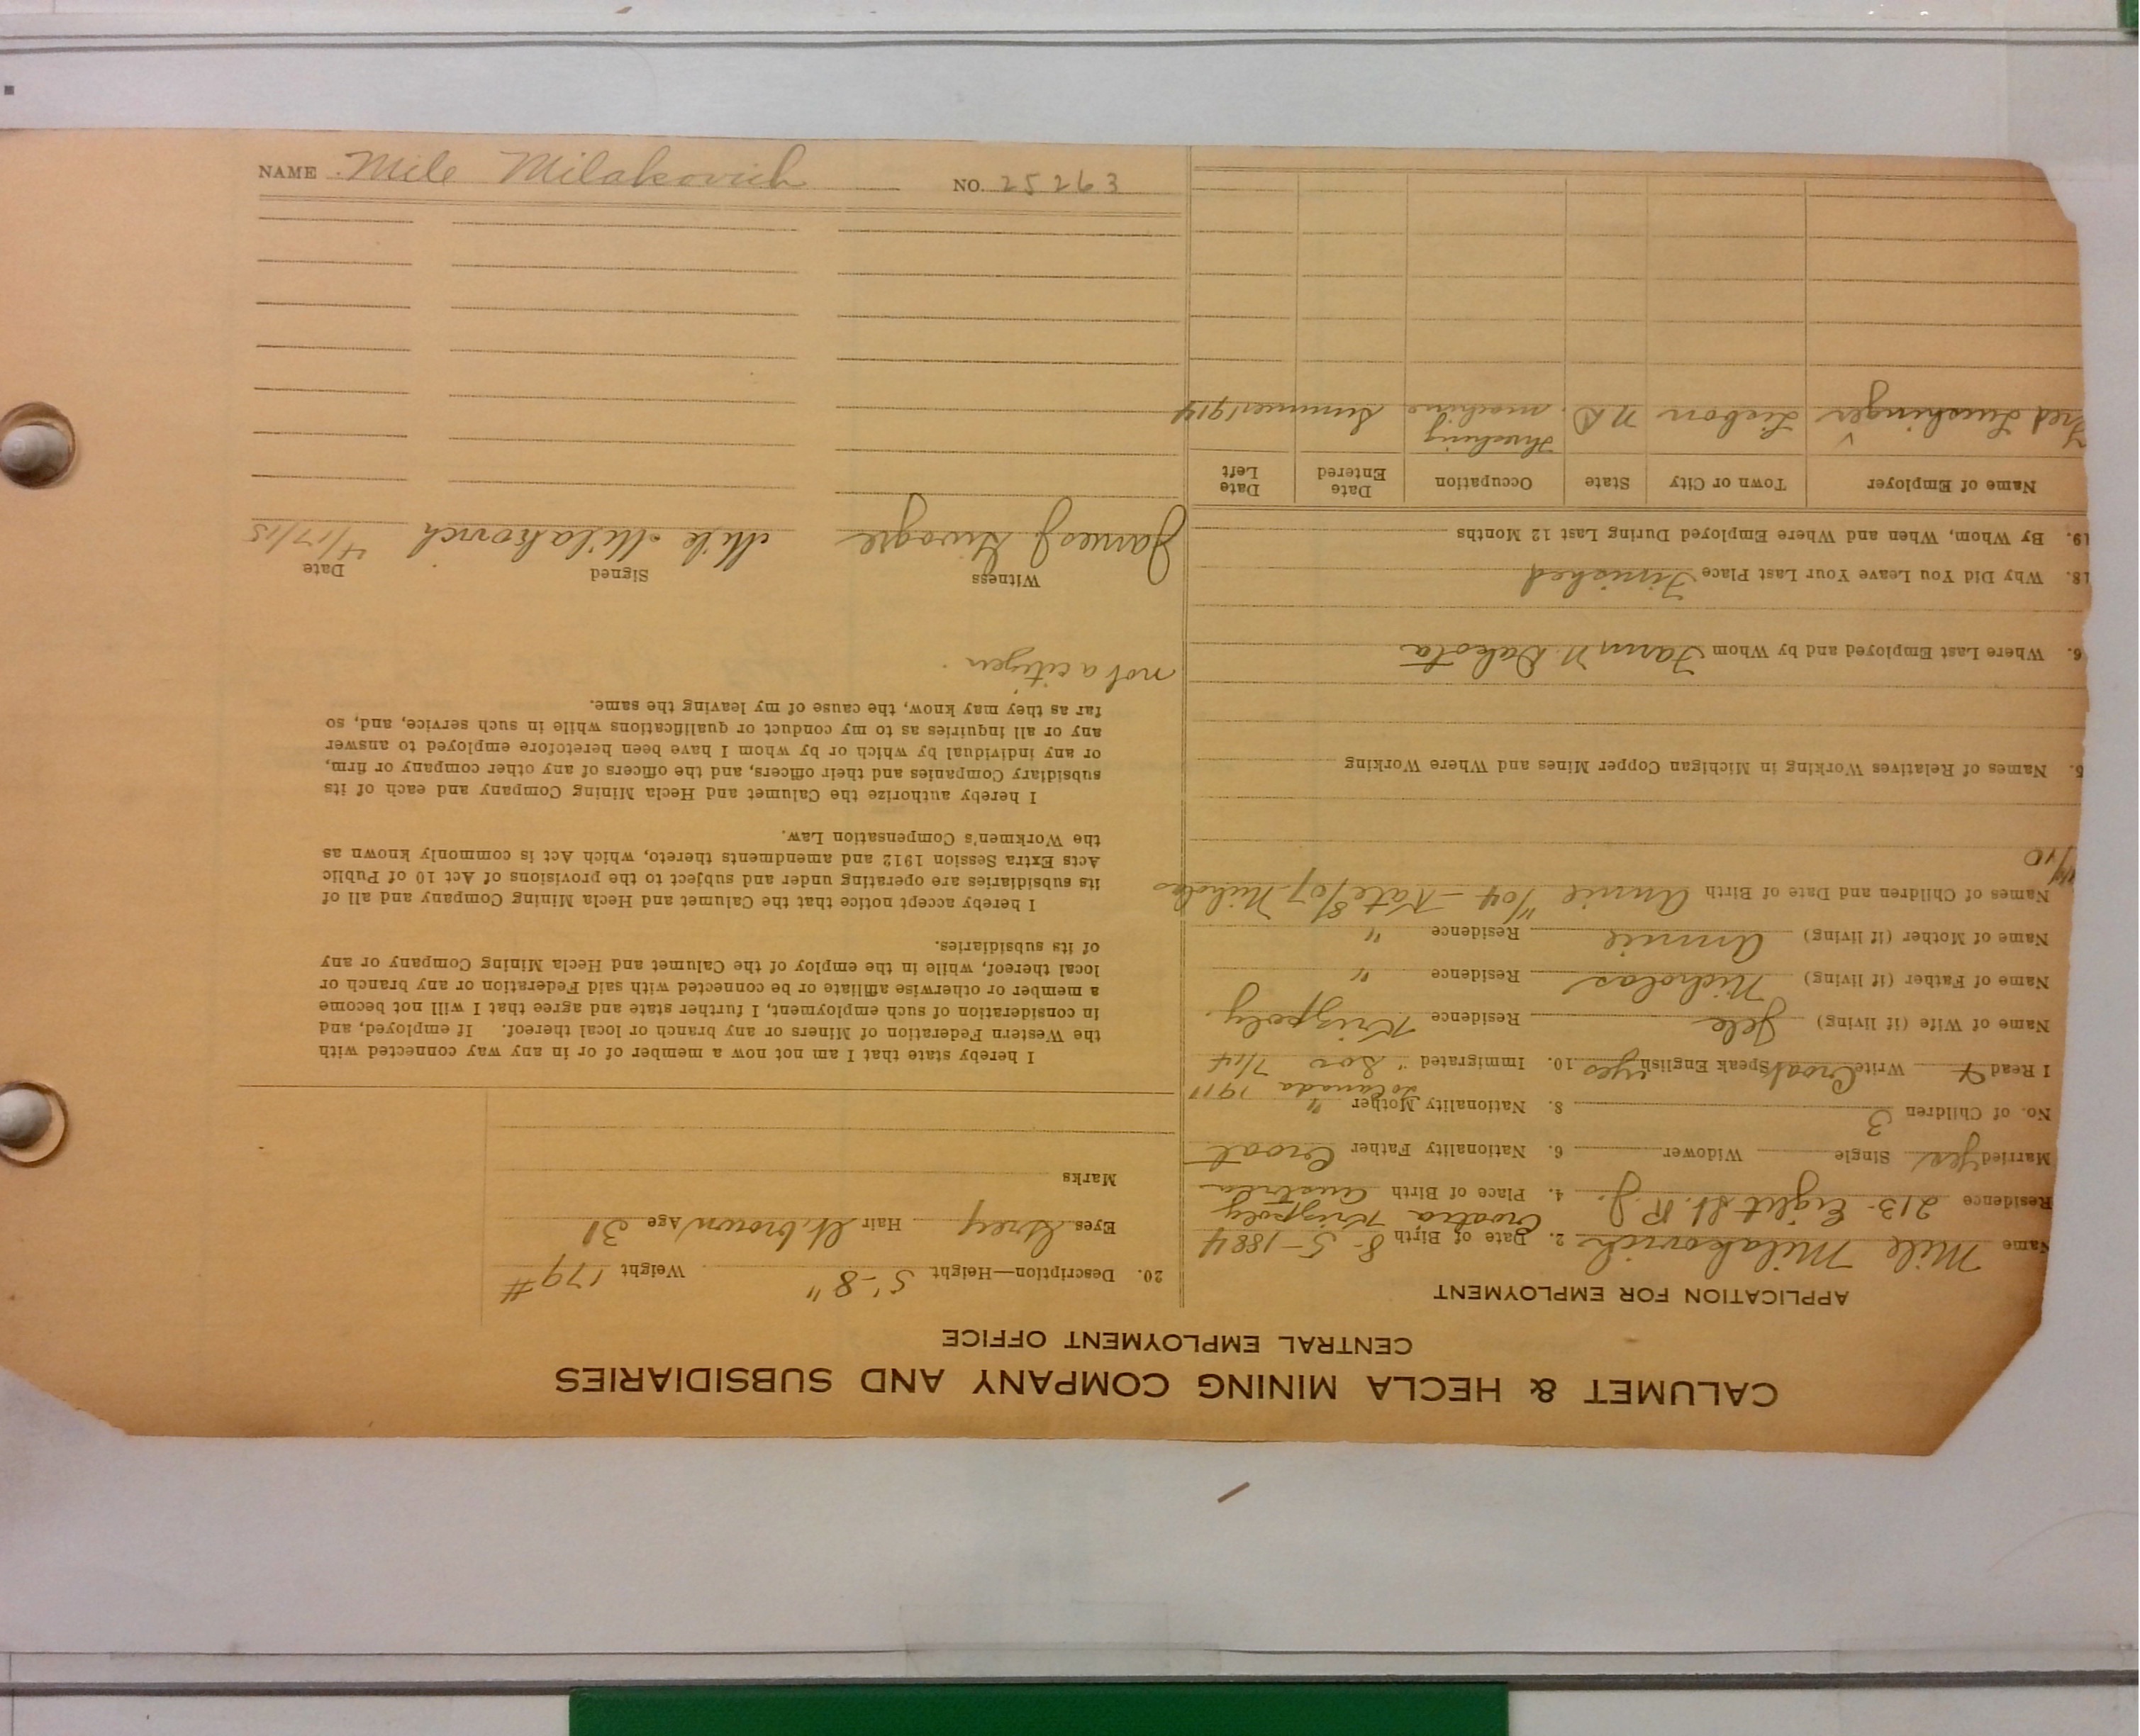 CALUMET & HECLA MINING COMPANY AND SUBSIDIARIES
CENTRAL EMPLOYMENT OFFICE
APPLICATION FOR EMPLOYMENT
Name Mile Milakovich 2. Date of Birth 8-5-1884
Croatia Krizpoly
Residence 213-Eight St. R.J. 4. Place of Birth Austria
Married yes Single Widower 6. Nationality Father Croat
No. of Children 3 8. Nationality Mother "
to Canada 1911
I Read Write Croat Speak English yes 10. Immigrated " Soo 7/14
Name of Wife (if living) Jela Residence Krizpoly.
Name of Father (if living) Nicholas Residence "
Name of Mother (if living) Annie Residence "
Names of Children and Date of Birth Annie 11/04 - Kate 8/07 Nicholas
/10
5. Names of Relatives Working in Michigan Copper Mines and Where Working
6. Where Last Employed and by Whom Farm N. Dakota
18. Why Did You Leave Your Last Place Finished
19. By Whom, When and Where Employed During Last 12 Months
Name of Employer Town or City State Occupation Date Entered Date Left
Fred Lushinger Lisbon N D threshing machine Summer 1914
20. Description—Height 5'-8" Weight 179#
Eyes Grey Hair lt. brown Age 31
Marks
I hereby state that I am not now a member of or in any way connected with
the Western Federation of Miners or any branch or local thereof. If employed, and
in consideration of such employment, I further state and agree that I will not become
a member or otherwise affiliate or be connected with said Federation or any branch or
local thereof, while in the employ of the Calumet and Hecla Mining Company or any
of its subsidiaries.
I hereby accept notice that the Calumet and Hecla Mining Company and all of
its subsidiaries are operating under and subject to the provisions of Act 10 of Public
Acts Extra Session 1912 and amendments thereto, which Act is commonly known as
the Workmen's Compensation Law.
I hereby authorize the Calumet and Hecla Mining Company and each of its
subsidiary Companies and their officers, and the officers of any other company or firm,
or any individual by which or by whom I have been heretofore employed to answer
any or all inquiries as to my conduct or qualifications while in such service, and, so
far as they may know, the cause of my leaving the same.
not a citizen.
Witness Signed Date
James J. Mile Milakovich 4/17/15
NAME Mile Milakovich NO. 25263